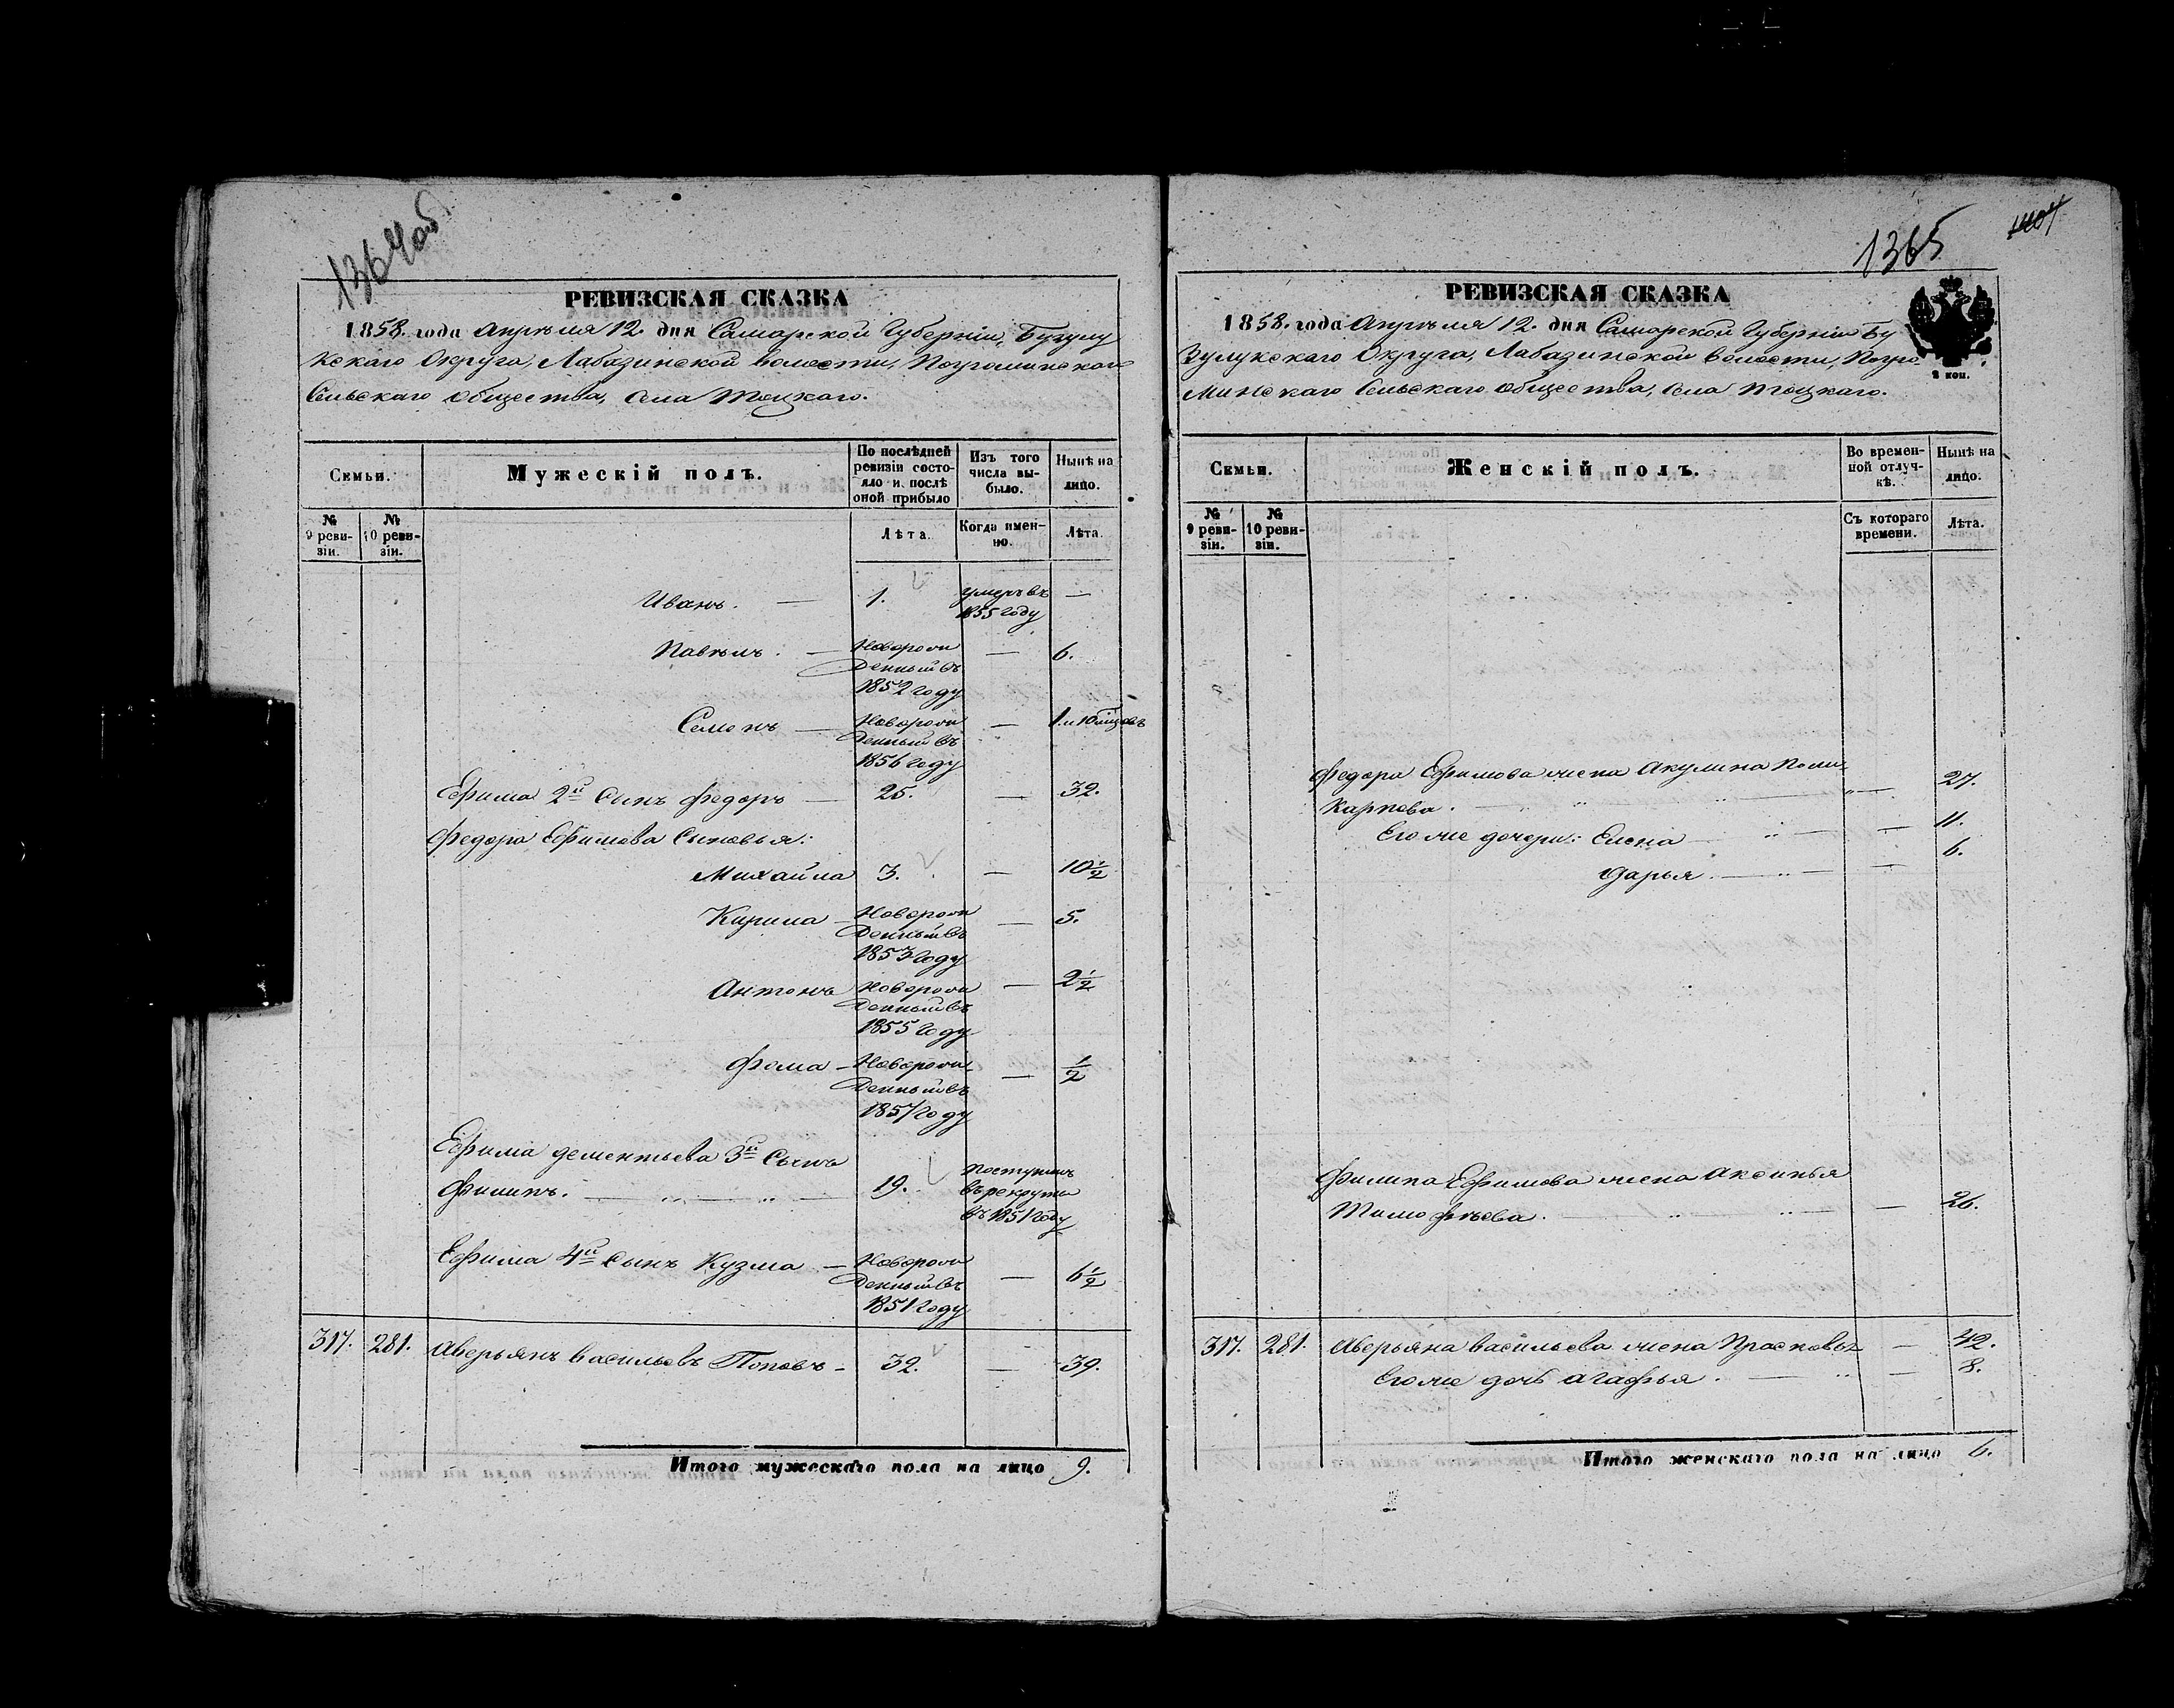 1364об
РЕВИЗСКАЯ СКАЗКА
1858. года Апрѣля 12. дня Самарской Губерніи, Бузулу
кскаго Округа, Лабазинской волости, Погроминскаго
Сельскаго общества, села Тоцкаго.
Семьи.
Мужескій полъ.
По послѣдней ревизіи состояло и послѣ оной прибыло
Изъ того числа выбыло.
Нынѣ на лицо.
№ 9 ревизіи.
№ 10 ревизіи.
Лѣта.
Когда именно.
Лѣта.
Иванъ. — 1. умеръ въ 1855 году —
Павелъ. — Новорожденный въ 1852 году — 6.
Семенъ — Новорожденный въ 1856 году — 1. и 10 мѣсяцовъ
Ефима 2й Сынъ Федоръ — 25. — 32.
Федора Ефимова Сыновья:
Михайла 3. — 10 1/2
Кирила — Новорожденный въ 1853 году — 5.
Антонъ Новорожденный въ 1855 году — 2 1/2
Фома — Новорожденный въ 1857 году — 1/2
Ефима дементьева 3й Сынъ
Филипъ. — 19. поступилъ въ рекруты въ 1851 году
Ефима 4й Сынъ Кузма — Новорожденный въ 1851 году — 6 1/2
317. 281. Аверьянъ васильевъ Поповъ — 32. — 39.
Итого мужескаго пола на лицо 9.
1365
РЕВИЗСКАЯ СКАЗКА
2 коп.
1858. года Апрѣля 12. дня Самарской Губерніи Бу
зулукскаго Округа, Лабазинской волости, Погро-
минскаго Сельскаго общества, села Тоцкаго.
Семьи.
Женскій полъ.
Во временной отлучкѣ.
Нынѣ на лицо.
№ 9 ревизіи.
№ 10 ревизіи.
Съ котораго времени.
Лѣта.
Федора Ефимова жена Акулина Поли-
карпова. — 27.
Его же дочери: Елена — 11.
Дарья. — 6.
Филипа Ефимова жена Аксинья
Тимофѣева. — 26.
317. 281. Аверьяна васильева жена Прасковья — 42.
Его же дочь агафья. — 8.
Итого женскаго пола на лицо 6.